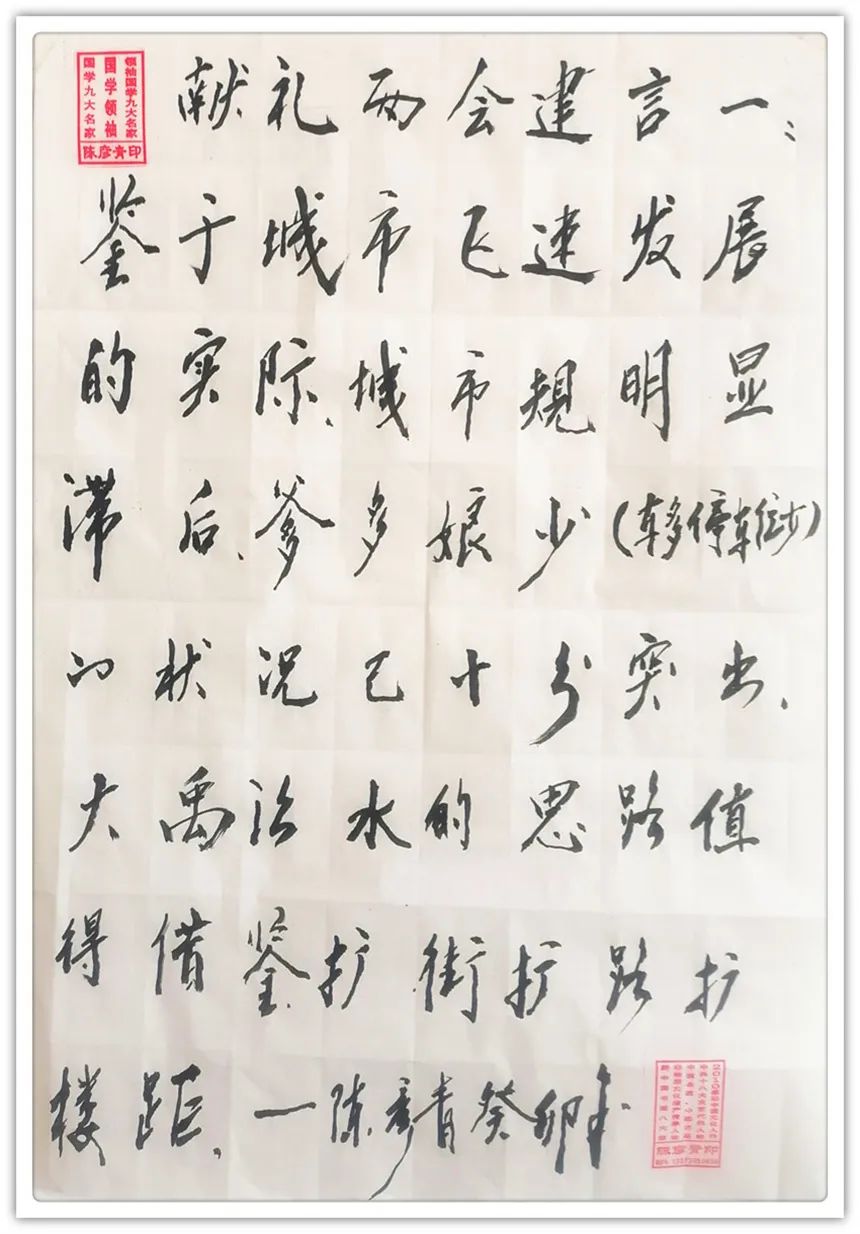 领袖国学九大名家
国学领袖
国学九大名家
陈彦青印
献礼两会建言一：
鉴于城市飞速发展
的实际、城市规明显
滞后、爹多娘少（车多停车位少）
的状况已十分突出、
大禹治水的思路值
得借鉴、扩街扩路扩
楼距、一陈彦青癸卯年
陈彦青印